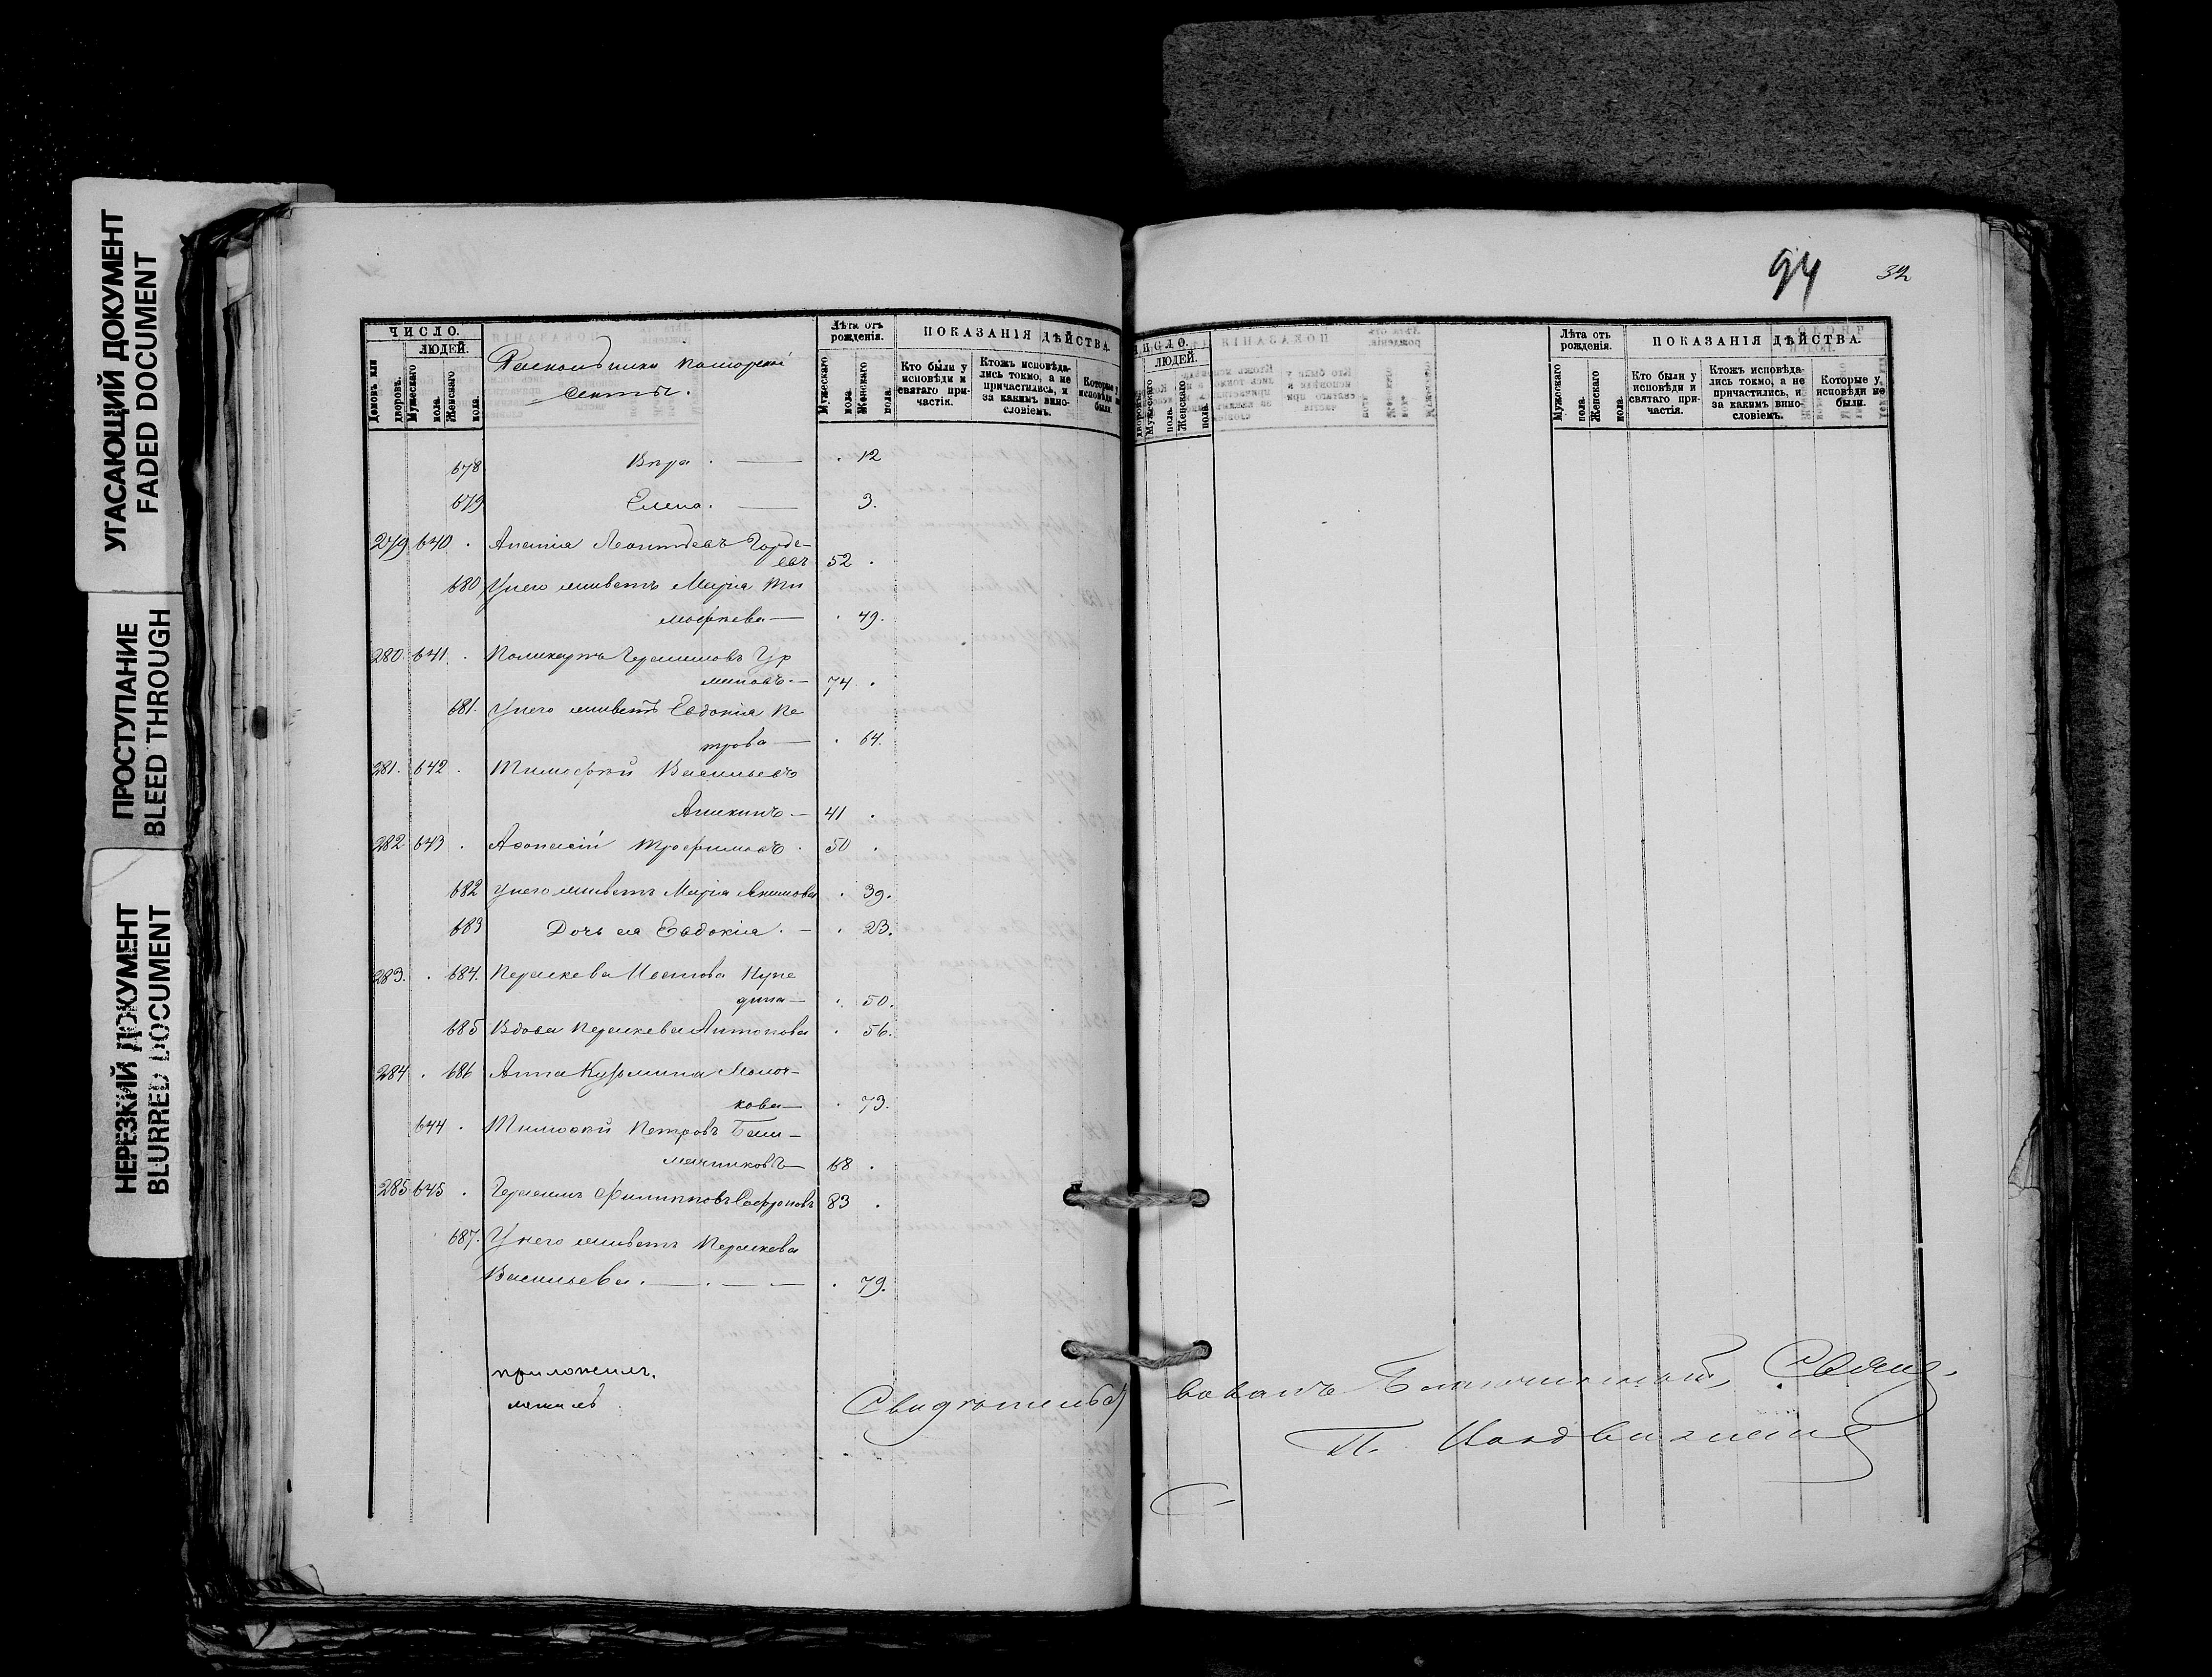 УГАСАЮЩИЙ ДОКУМЕНТ
FADED DOCUMENT
ПРОСТУПАНИЕ
BLEED THROUGH
НЕРЕЗКИЙ ДОКУМЕНТ
BLURRED DOCUMENT
ЧИСЛО.
ЛЮДЕЙ.
Домовъ или дворовъ.
Мужескаго пола.
Женскаго пола.
Раскольники поморской
секты.
Лѣта отъ рожденія.
Мужескаго пола.
Женскаго пола.
ПОКАЗАНІЯ ДѢЙСТВА.
Кто были у исповѣди и святаго причастія.
Ктожъ исповѣдались токмо, а не причастились, и за какимъ винословіемъ.
Которые у исповѣди не были.
678 Вѣра . — . 12
679 Елена . — 3.
279 640 . Ананія Леонтьевъ Горде-
евъ 52 .
680 У него живетъ Марія Ти
мофѣева — . 49.
280 641 . Поликарпъ Герасимовъ
74 .
681. У него живетъ Евдокія Пе
трова — . 64.
281. 642 . Тимофѣй Васильевъ
Аникинъ — 41 .
282 643 . Аѳонасій Трофимовъ . 50 .
682 У него живетъ Марія Акимова . 39.
683 Дочь ея Евдокія . — . 23.
283. . 684. Параскева Изотова
. 50.
685 Вдова Параскева Антонова . 56.
284 . 686 Анна Кузьмина Молоч-
кова — . 73.
644 . Тимоѳѣй Петровъ Баш-
мачниковъ — 68 .
285 645 . Герасимъ Филипповъ Софроновъ 83 .
687. У него живетъ Параскева
Васильева . — . — — . 79.
приложилъ.
94 32
ЧИСЛО.
ЛЮДЕЙ.
дворовъ.
Мужескаго пола.
Женскаго пола.
Лѣта отъ рожденія.
Мужескаго пола.
Женскаго пола.
ПОКАЗАНІЯ ДѢЙСТВА.
Кто были у исповѣди и святаго причастія.
Ктожъ исповѣдались токмо, а не причастились, и за какимъ винословіемъ.
Которые у исповѣди не были.
Свидѣтельствовалъ Благочинный, Свящ.
П.